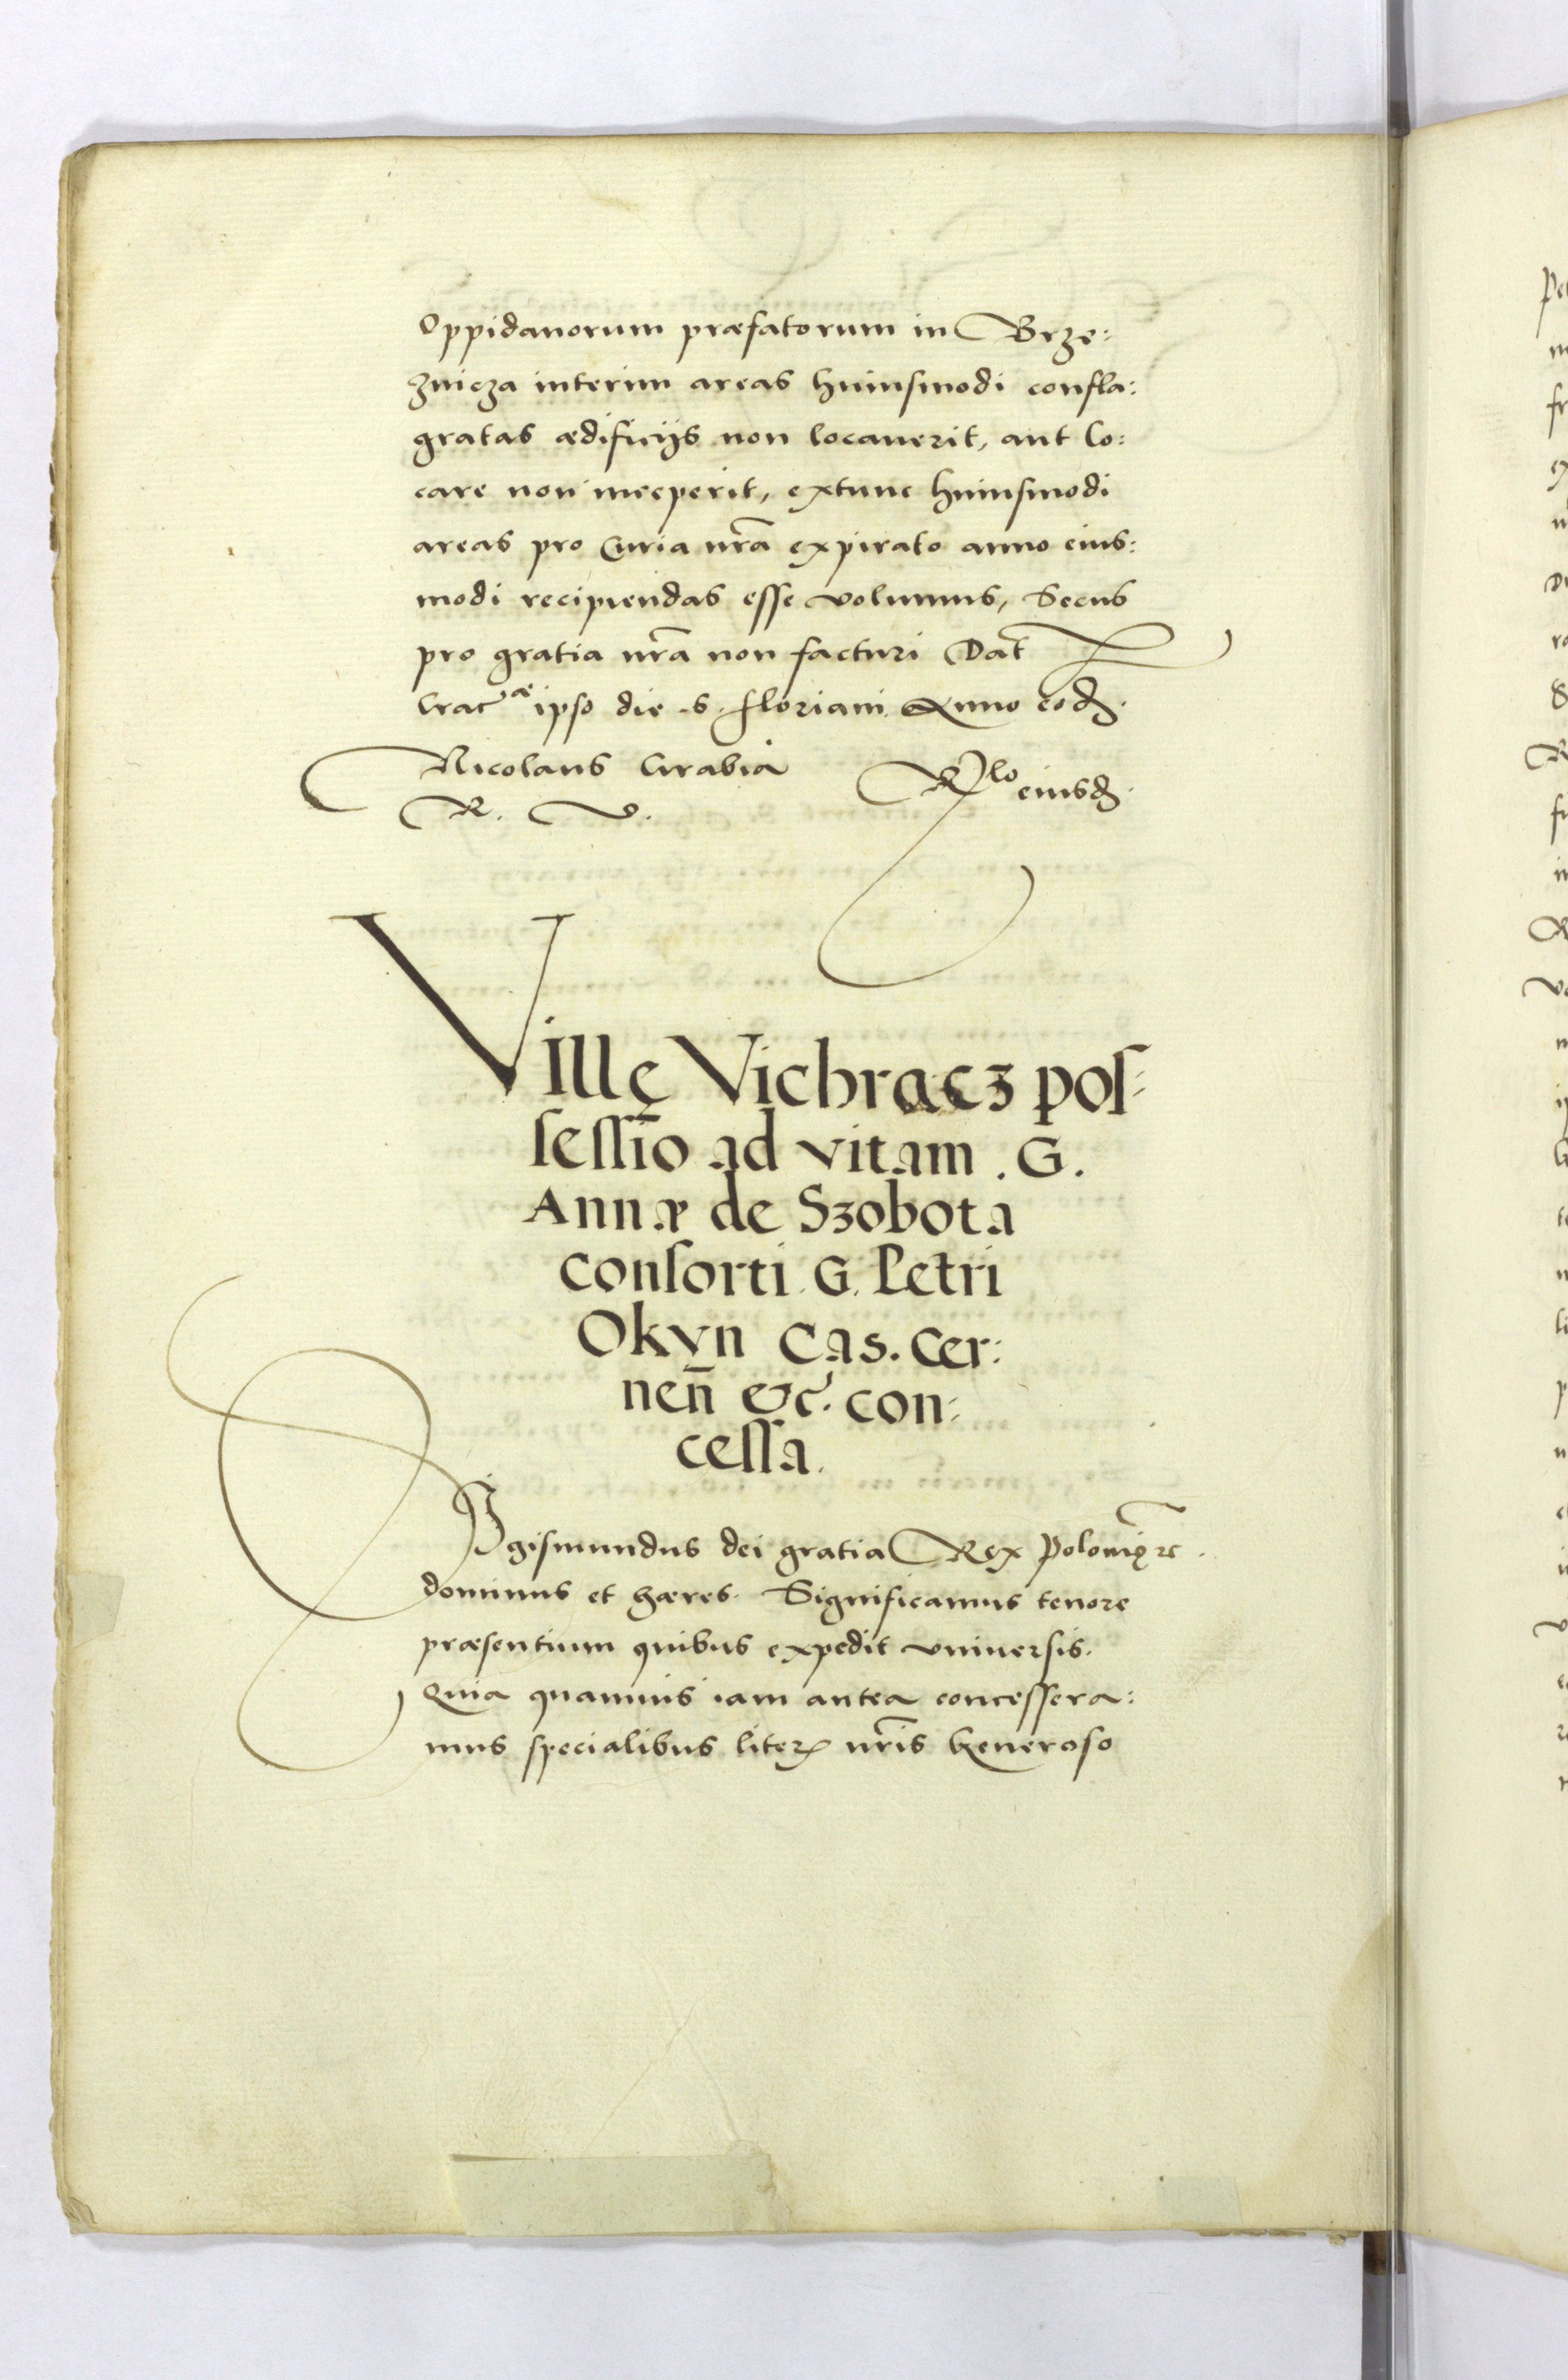 Oppidanorum præfatorum in Brze:
znicza interim areas huiusmodi confla:
gratas ædificijs non locauerit, aut lo:
care non inceperit, extunc huiusmodi
areas pro Curia nr̃a expirato anno eius:
modi recipiendas esse volumus, Secus
pro gratia nr̃a non facturi Dat̃
Crac^æ ipso die S. Floriani Anno eod̃.
Nicolaus Grabia
R. V.
R^lo eiusd̃.
Villę Vichracz pos:
sessio ad vitam . G.
Annæ de Szobota
consorti . G. Petri
Okvn Cas. Cer:
nen̄ &c. con:
cessa.
Sigismundus dei gratia Rex Polonię etc.
dominus et hæres. Significamus tenore
præsentium quibus expedit vniuersis.
Quia quamuis iam antea concessera:
mus specialibus literꝭ nr̃is Generoso